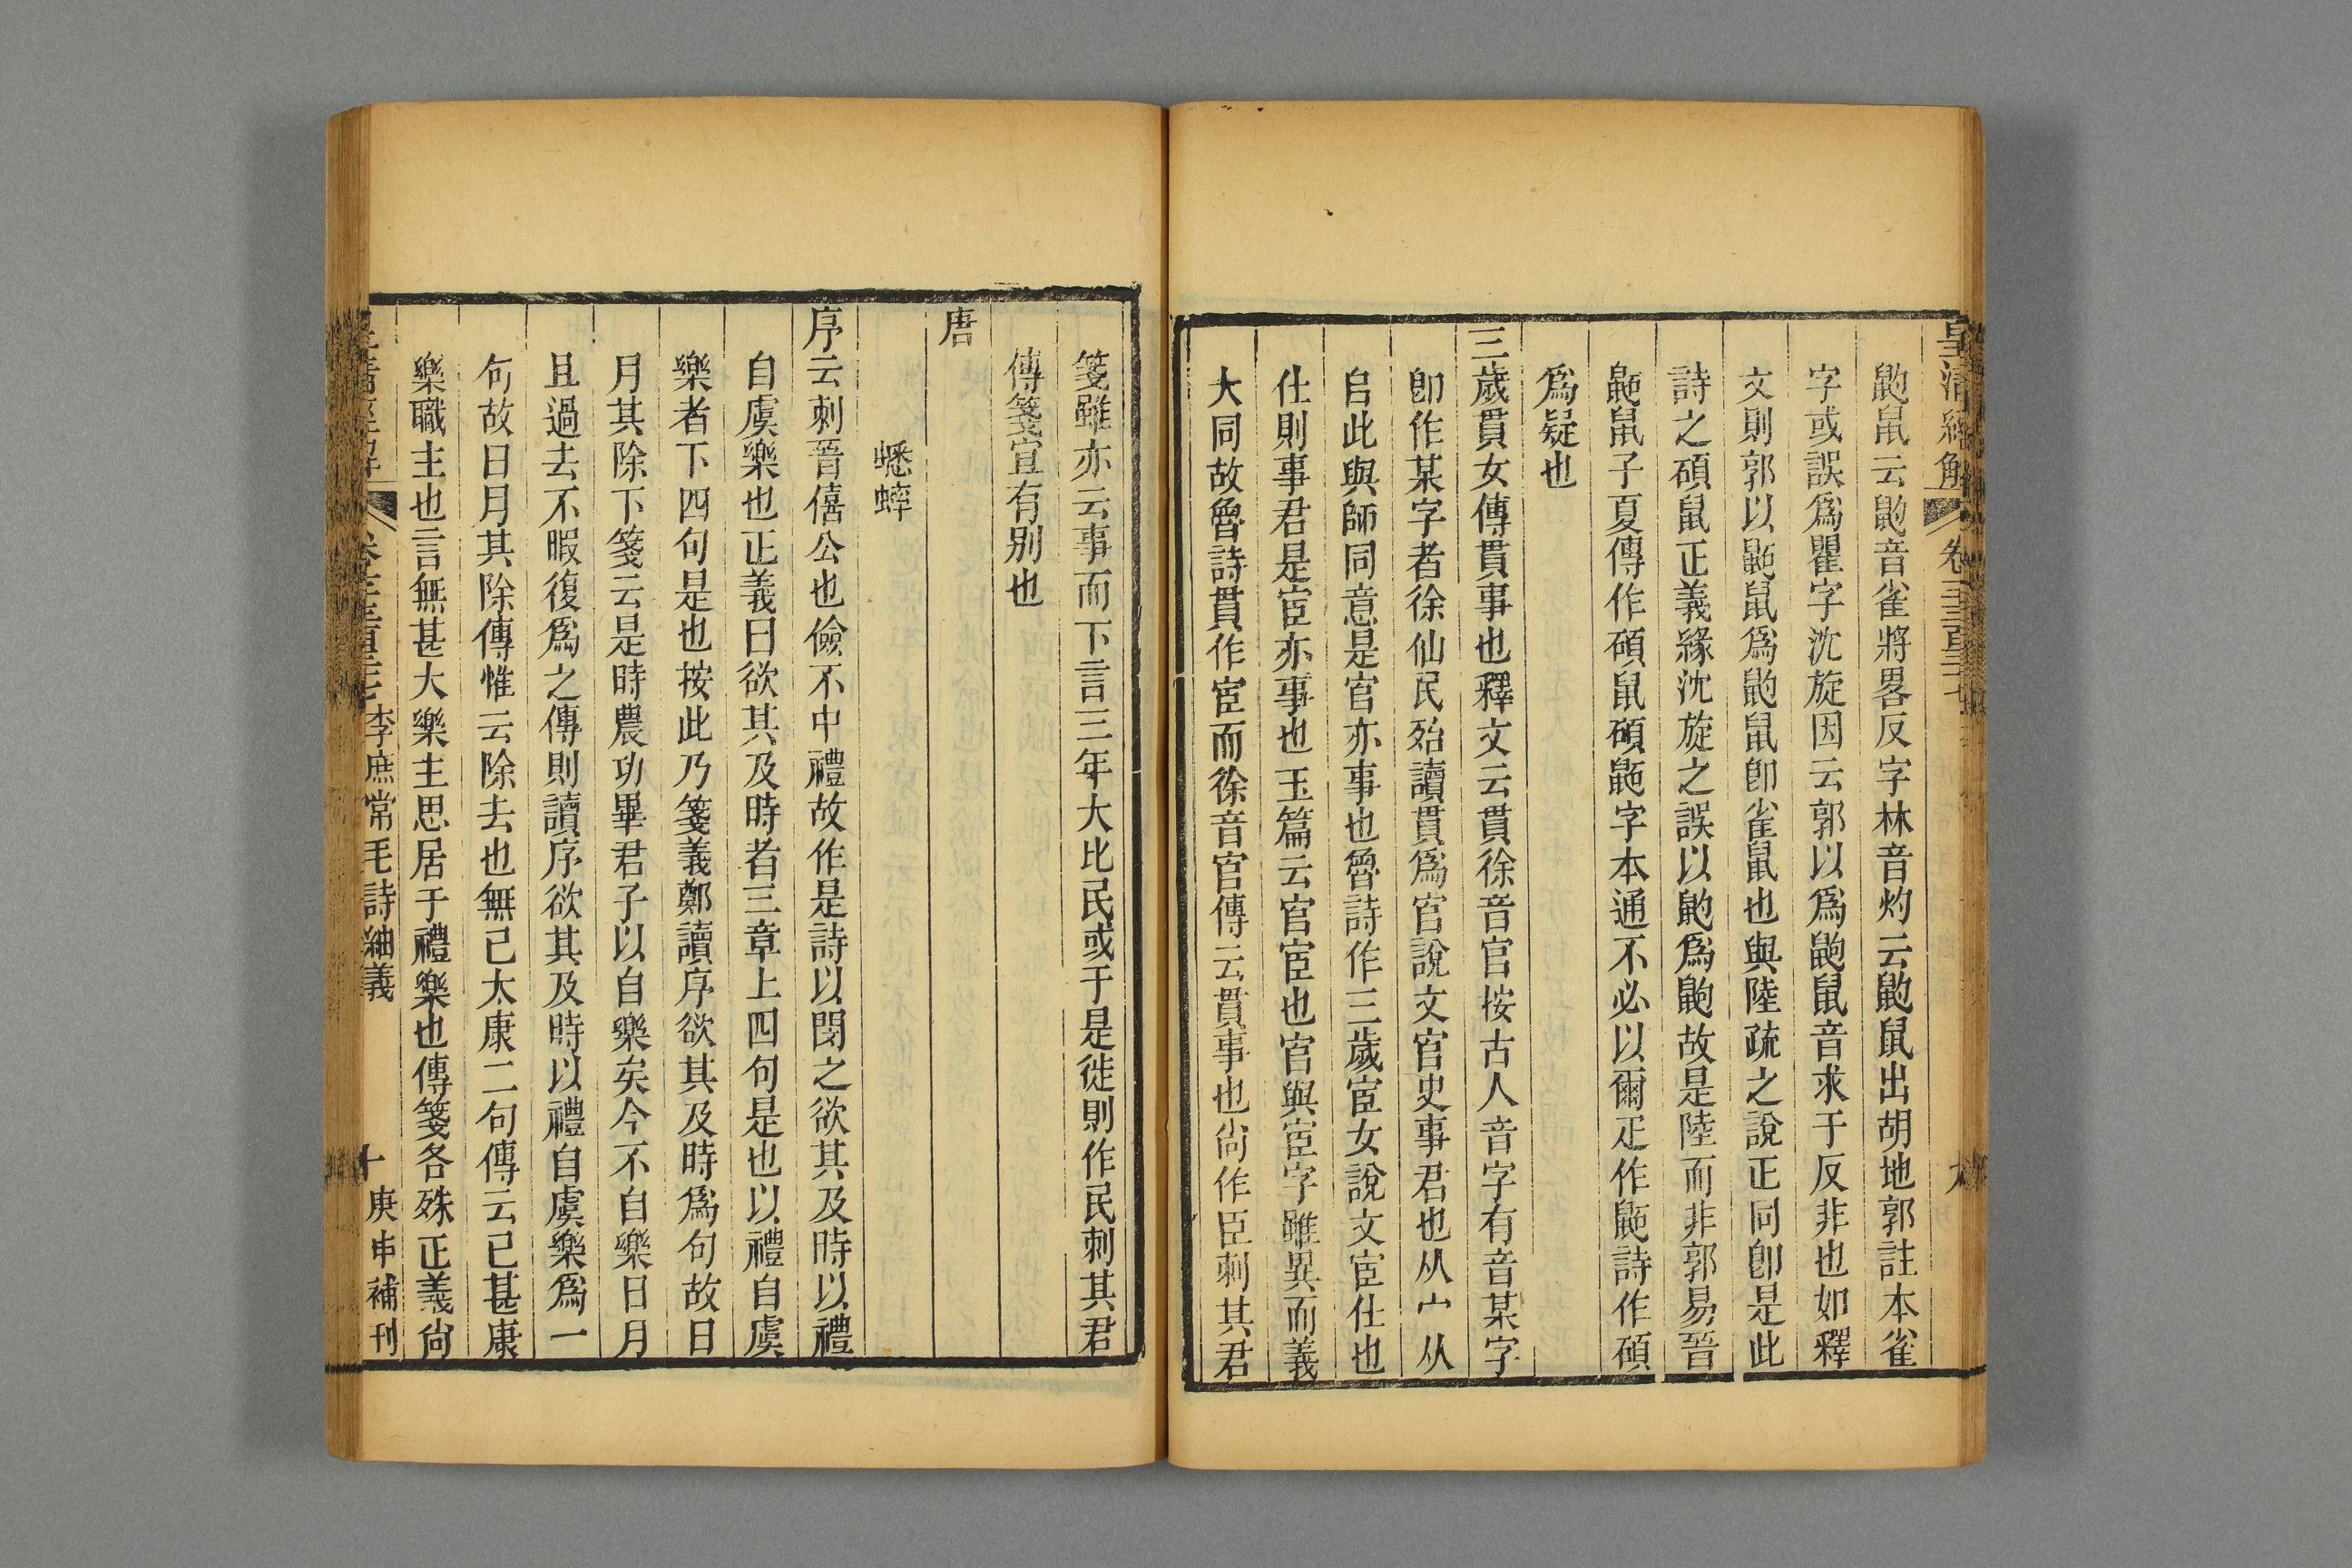 皇清經解 卷一千三百三十七 九
鼩鼠云鼩音雀將畧反字林音灼云鼩鼠出胡地郭註本雀
字或誤爲瞿字沈旋因云郭以爲鼩鼠音求于反非也如釋
文則郭以鼫鼠爲鼩鼠卽雀鼠也與陸疏之說正同卽是此
詩之碩鼠正義緣沈旋之誤以鼩爲鼩故是陸而非郭易晉
鼫鼠子夏傳作碩鼠碩鼫字本通不必以爾疋作鼫詩作碩
爲疑也
三歲貫女傳貫事也釋文云貫徐音官按古人音字有音某字
卽作某字者徐仙民殆讀貫爲官說文官史事君也从宀从
𠂤此與師同意是官亦事也魯詩作三歲宦女說文宦仕也
仕則事君是宦亦事也玉篇云官宦也官與宦字雖異而義
大同故魯詩貫作宦而徐音官傳云貫事也尙作臣刺其君
箋雖亦云事而下言三年大比民或于是徙則作民刺其君
傳箋宜有別也
唐
蟋蟀
序云刺晉僖公也儉不中禮故作是詩以閔之欲其及時以禮
自虞樂也正義曰欲其及時者三章上四句是也以禮自虞
樂者下四句是也按此乃箋義鄭讀序欲其及時爲句故日
月其除下箋云是時農功畢君子以自樂矣今不自樂日月
且過去不暇復爲之傳則讀序欲其及時以禮自虞樂爲一
句故日月其除傳惟云除去也無已太康二句傳云已甚康
樂職主也言無甚大樂主思居于禮樂也傳箋各殊正義尙
皇清經解 卷一千三百三十七 李庶常毛詩紬義 十 庚申補刊